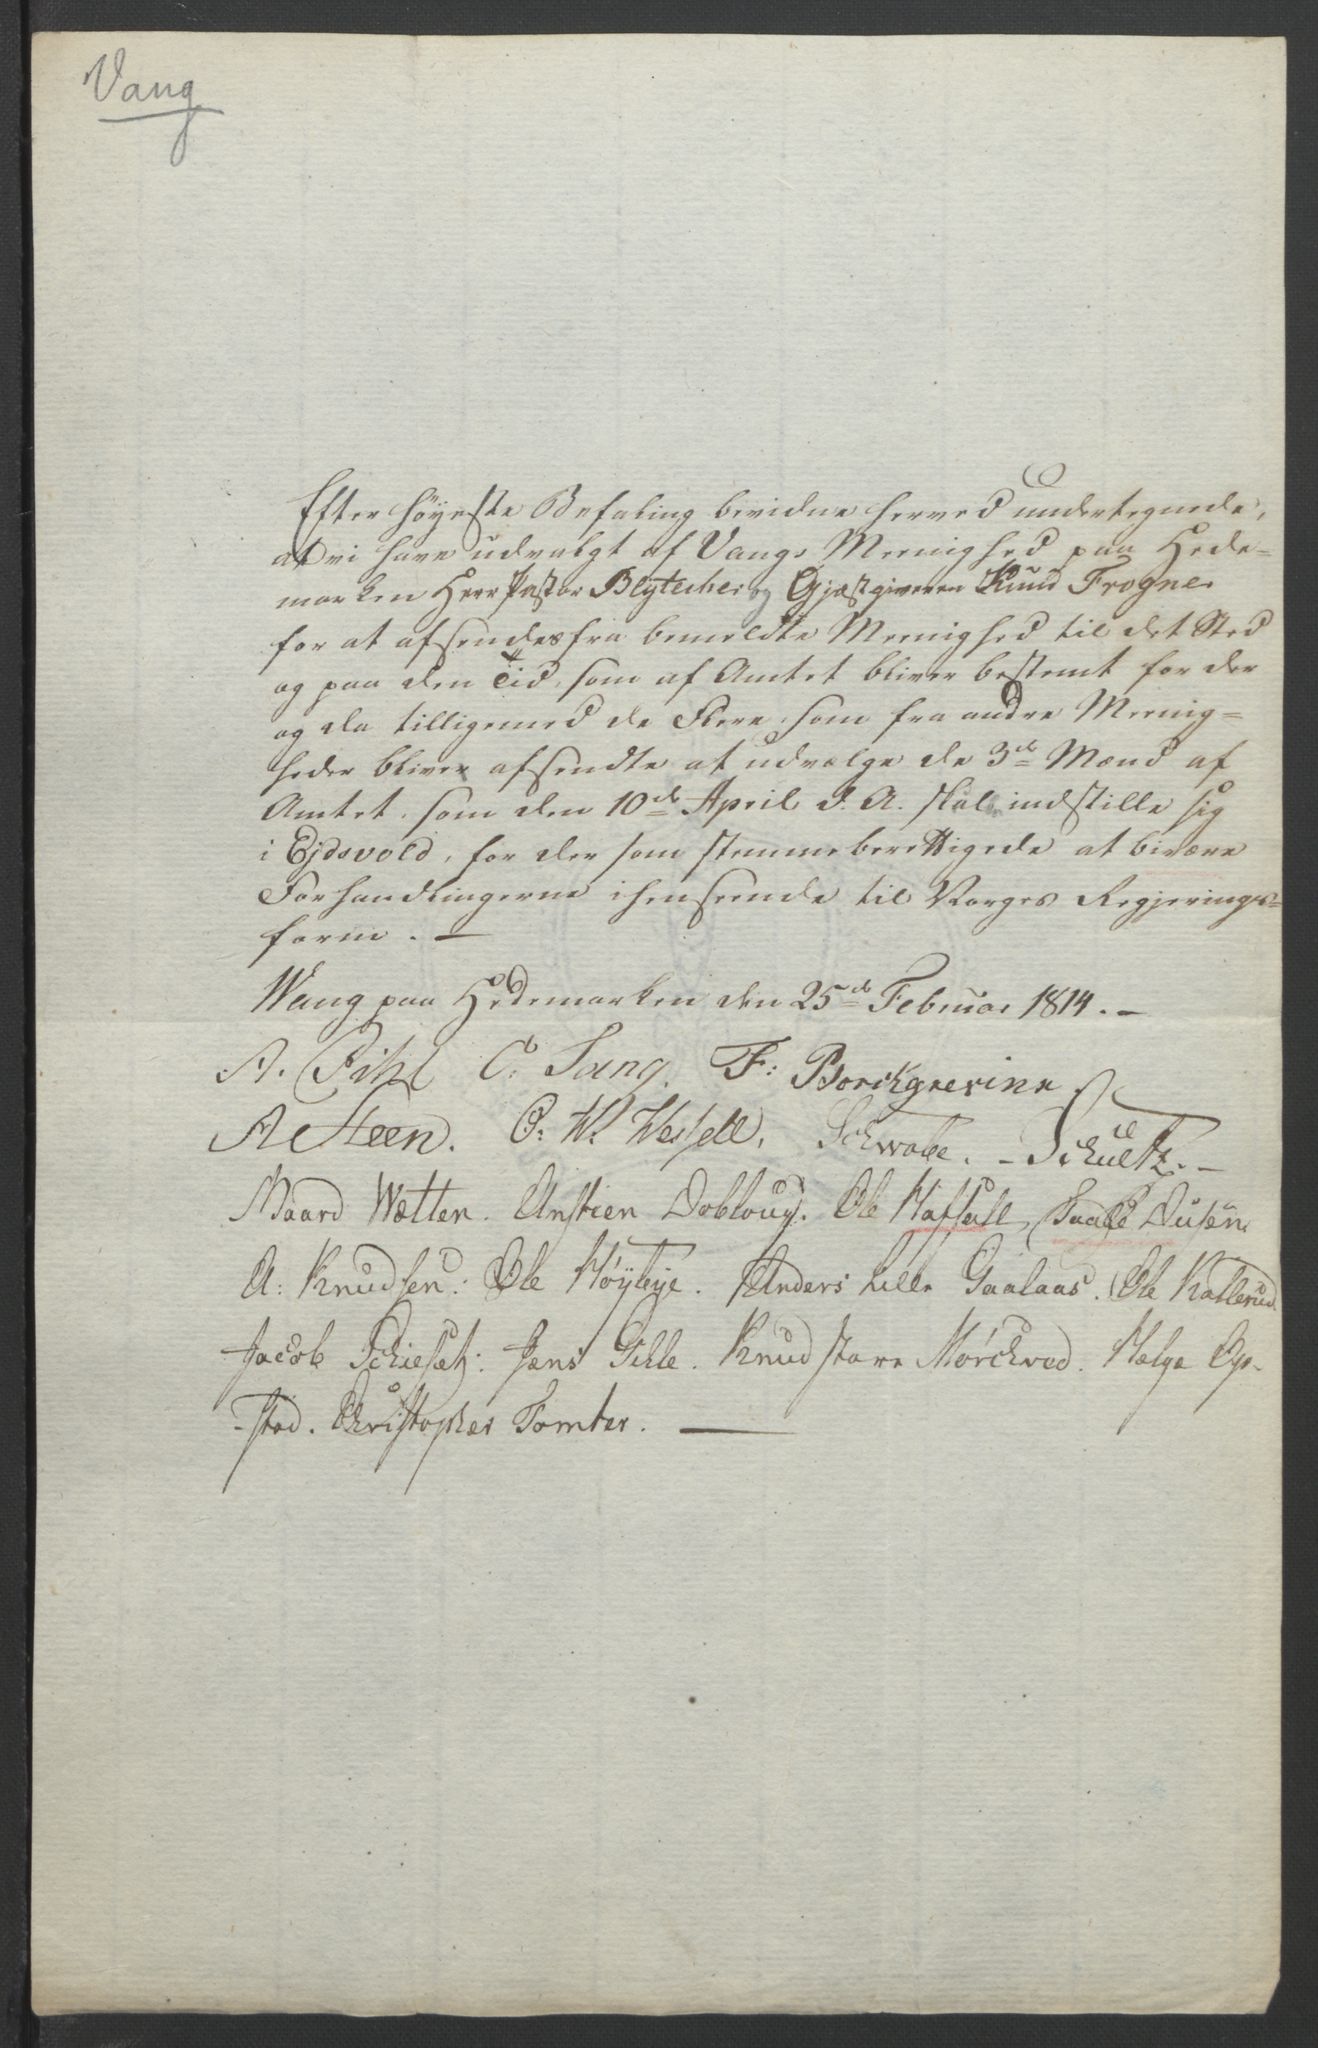 Vang
Efter höyeste Befaling bevidne herved undertegnede,
at vi have udvalgt af Vangs Meenighed paa Hede=
marken Herr Pastor Blytecher og Gjæstgiveren Knud Frogner
for at afsendes fra bemeldte Meenighed til det Sted
og paa den Tid, som af Amtet bliver bestemt for der
og da tilligemed de Flere som fra andre Meenig=
heder bliver afsendte at udvælge de 3de Mænd af
Amtet, som den 10de April d. A. skal indstille sig
i Ejdsvold, for der som stemmeberettigede at bivære
Forhandlingerne ihenseende til Norges Regjerings=
form. —
Wang paa Hedemarken den 25de Februar 1814. –
A. Pihl C: Lang. F: Borchgrevink
A Steen. O: W. Wessell, Schwabe. – Schultz. –
Baard Wætten. Anstien Dobloug. Ole Hafsall, Dusen
A: Knudsen: Ole Höybye. Anders Lille Gaalaas. Ole Kallerud
Jacob Schieset: Jens Gihle. Knud store Mørchved. Helge Op-
-stad. Christopher Tomter. —